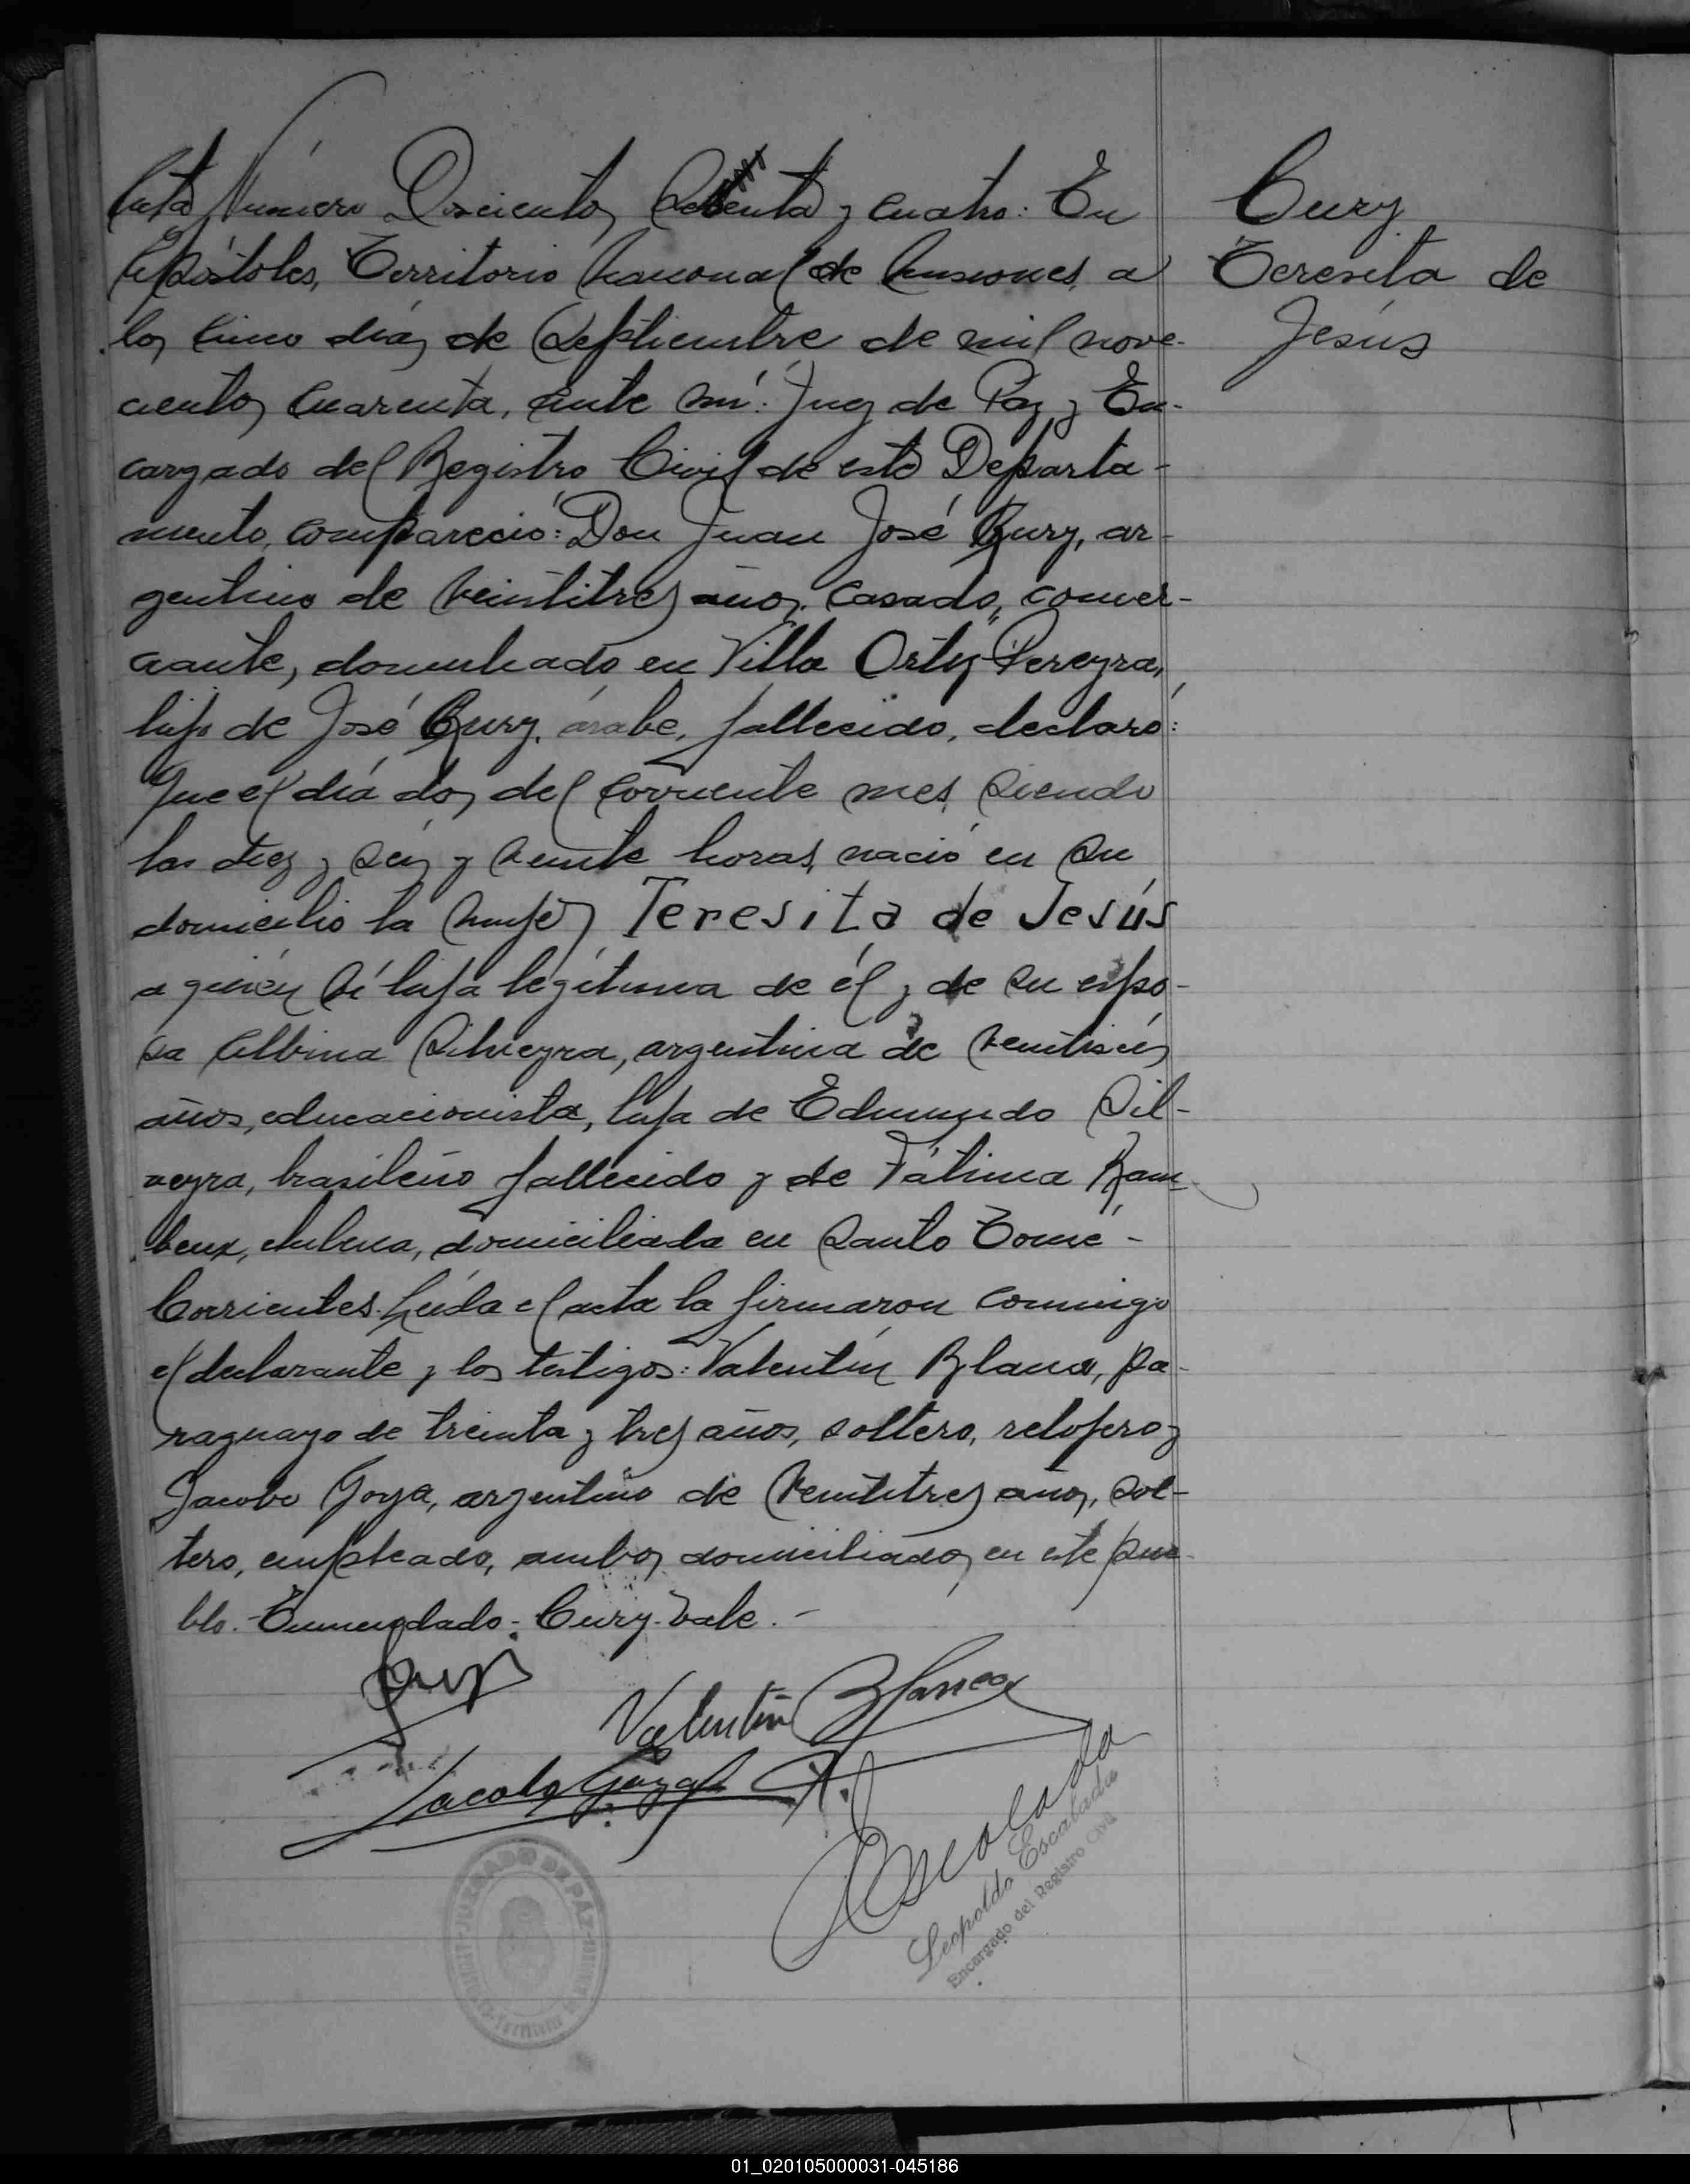 Acta Número Doscientos Setenta y cuatro: En
Apóstoles, Territorio Nacional de Misiones, a
los cinco días de Septiembre de mil nove-
cientos Cuarenta, ante mí: Juez de Paz y En-
cargado del Registro Civil de este Departa-
mento, compareció: Don Juan José Cury, ar-
gentino de veintitres años, casado, comer-
ciante, domiciliado en Villa Ortiz Pereyra,
hijo de José Cury, árabe, fallecido, declaró:
Que el día dos del corriente mes, siendo
las diez y seis y veinte horas, nació en su
domicilio la mujer Teresita de Jesús
a quién vi hija legítima de él y de su espo-
sa Albina Silveyra, argentina de veintiseis
años, educacionista, hija de Edmundo Sil-
veyra, brasileño fallecido y de Fátima
chilena, domiciliada en Santo Tomé -
Corrientes. Leída el acta la firmaron conmigo
el declarante y los testigos: Valentín Blanco, pa-
raguayo de treinta y tres años, soltero, relojero y
Jacobo Goya, argentino de veintitres años, sol-
tero, empleado, ambos domiciliados en este pue-
blo. - Enmendado: Cury. Vale. -
Valentín Blanco
Jacobo
Escalada
Leopoldo Escalada
Encargado del Registro Civil
JUZGADO DE PAZ
Cury
Teresita de
Jesús
01_020105000031-045186